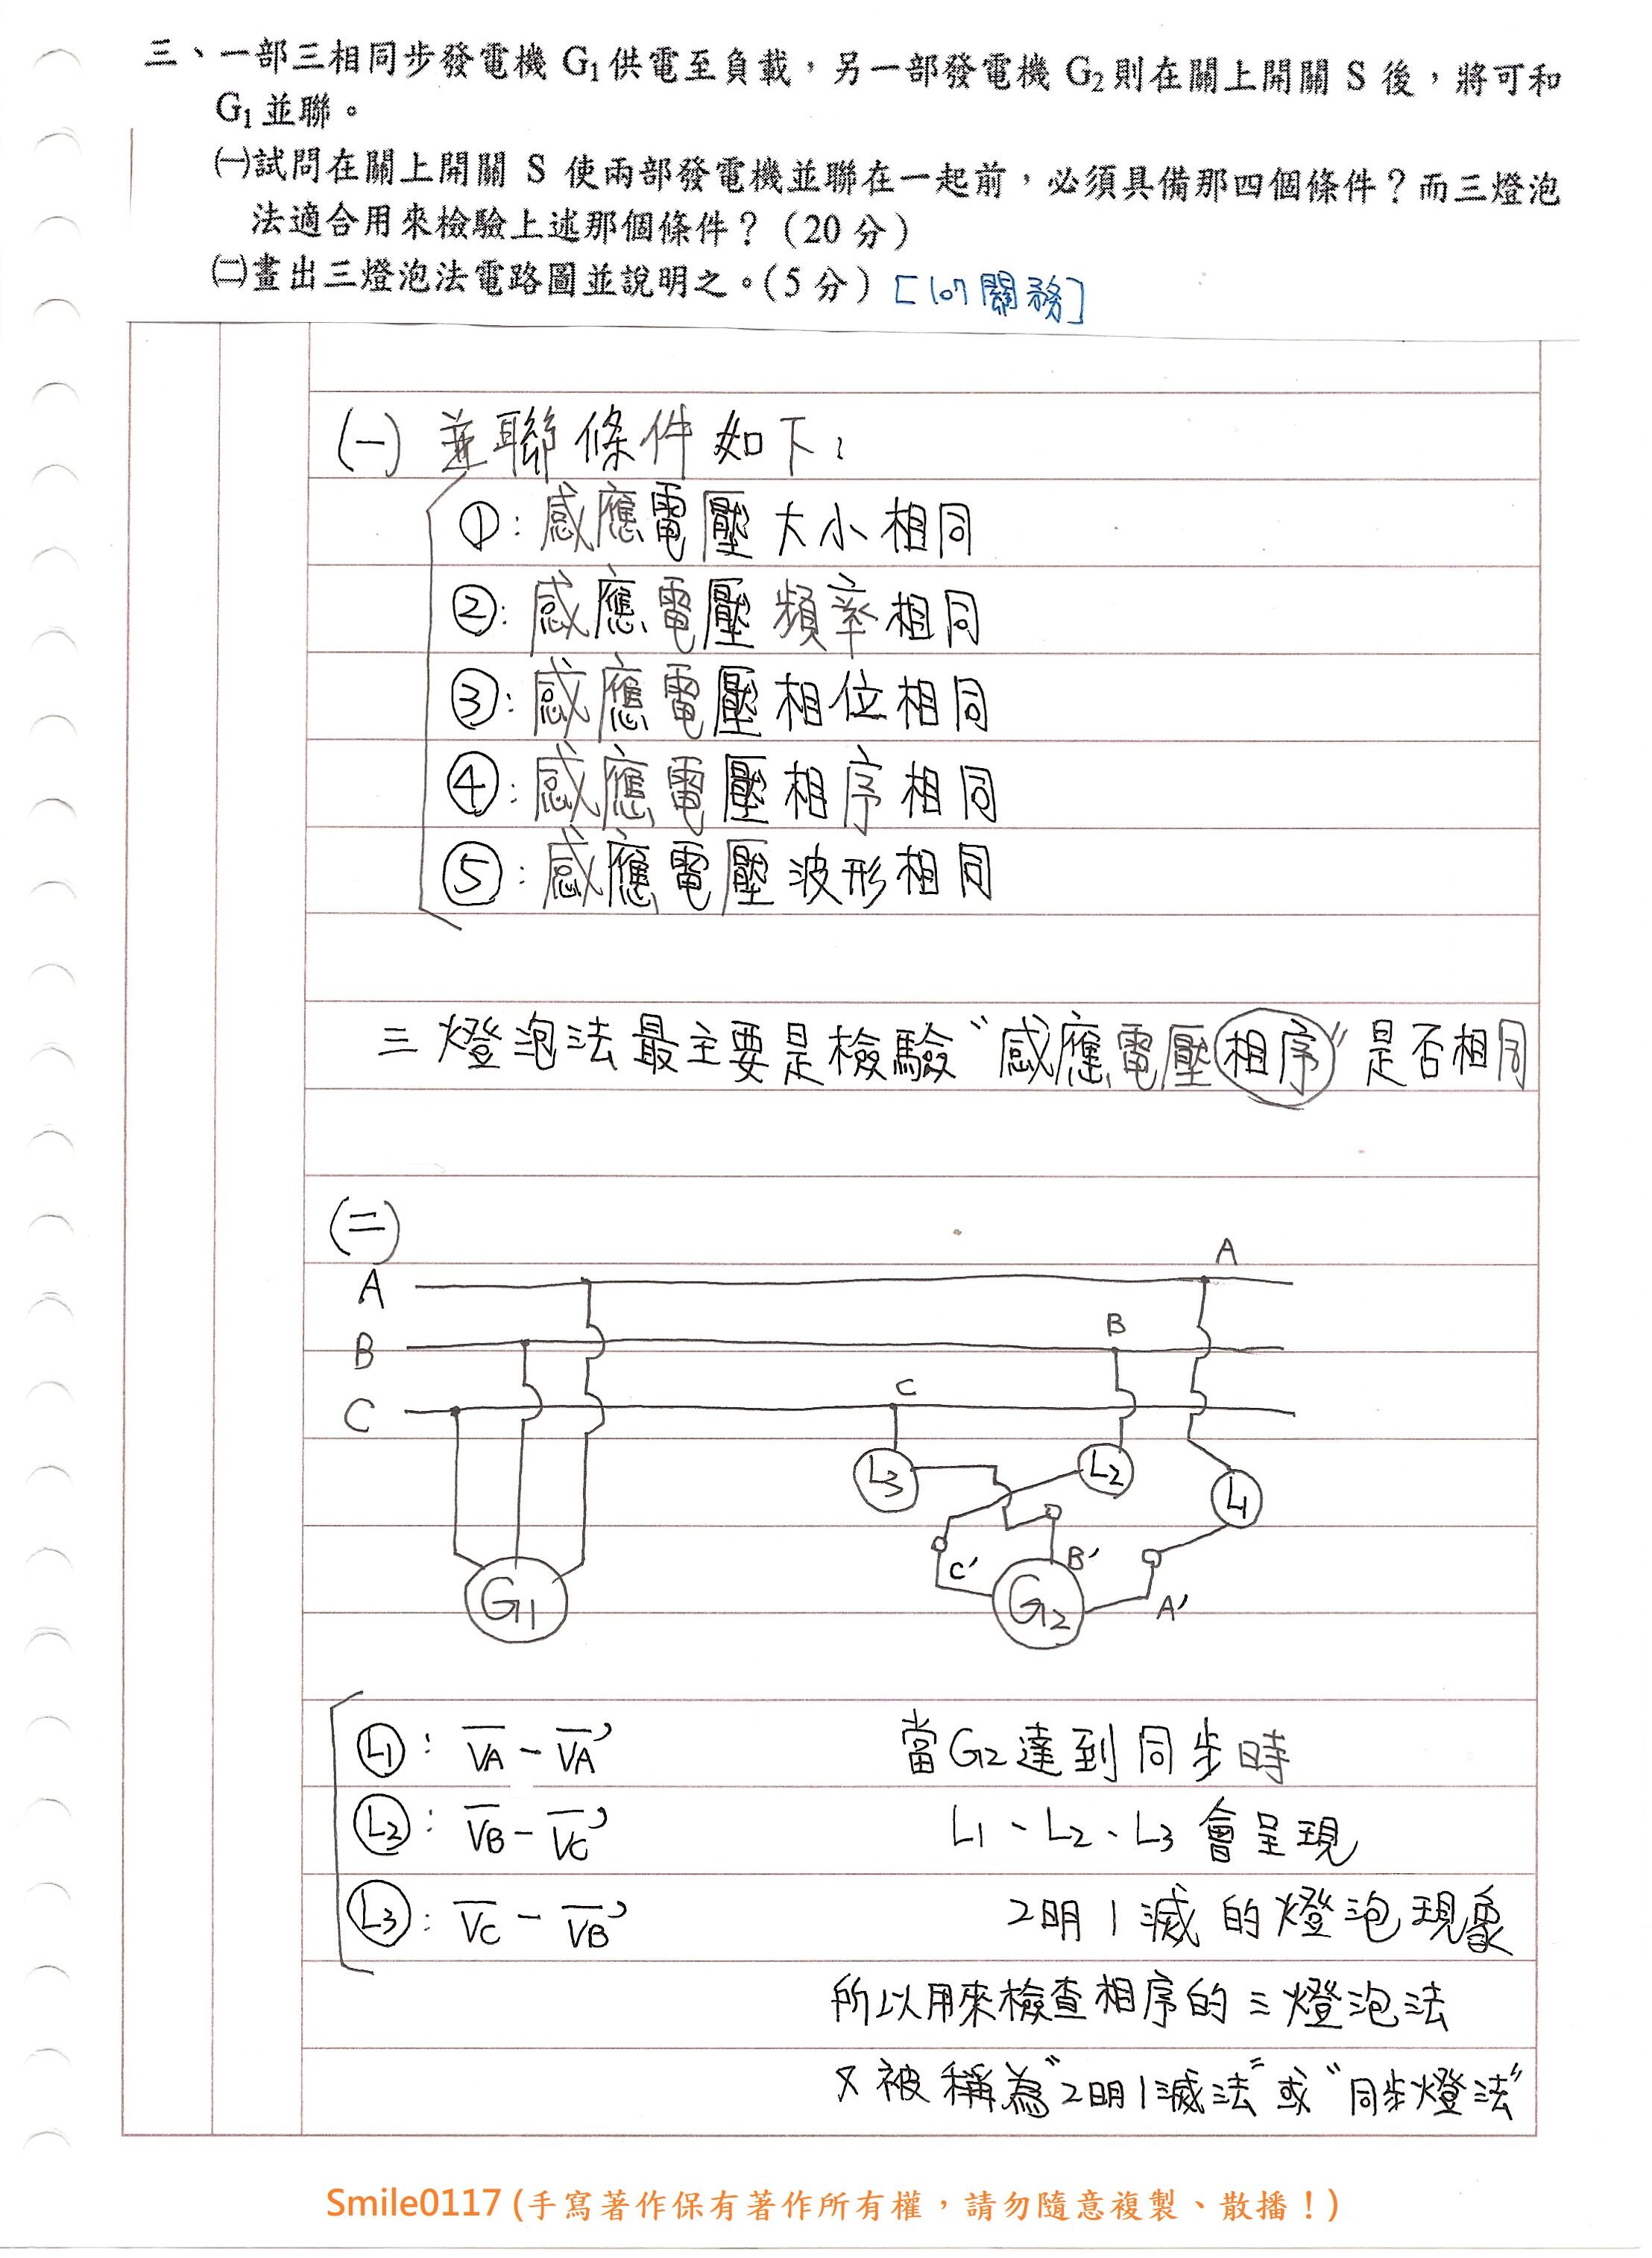 三、一部三相同步發電機 G₁ 供電至負載，另一部發電機 G₂ 則在關上開關 S 後，將可和
G₁ 並聯。
㈠試問在關上開關 S 使兩部發電機並聯在一起前，必須具備那四個條件？而三燈泡
法適合用來檢驗上述那個條件？（20 分）
㈡畫出三燈泡法電路圖並說明之。（5 分）[107 關務]
(一) 並聯條件如下：
①：感應電壓大小相同
②：感應電壓頻率相同
③：感應電壓相位相同
④：感應電壓相序相同
⑤：感應電壓波形相同
三燈泡法最主要是檢驗“感應電壓相序”是否相同
(二)
A A
B B
C C
L3 L2 L1
C' B' A'
G1 G2
L1：V̅A - V̅A' 當G2達到同步時
L2：V̅B - V̅C' L1、L2、L3會呈現
L3：V̅C - V̅B' 2明1滅的燈泡現象
所以用來檢查相序的三燈泡法
又被稱為“2明1滅法”或“同步燈法”
Smile0117 (手寫著作保有著作所有權，請勿隨意複製、散播！)